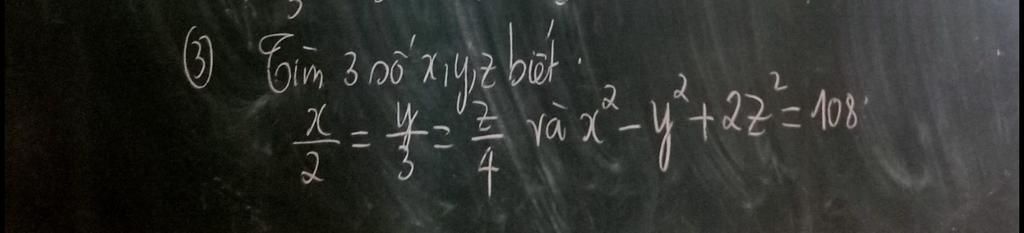 ③ Tìm 3 số x, y, z biết.
x/2 = y/3 = z/4 và x² - y² + 2z² = 108.